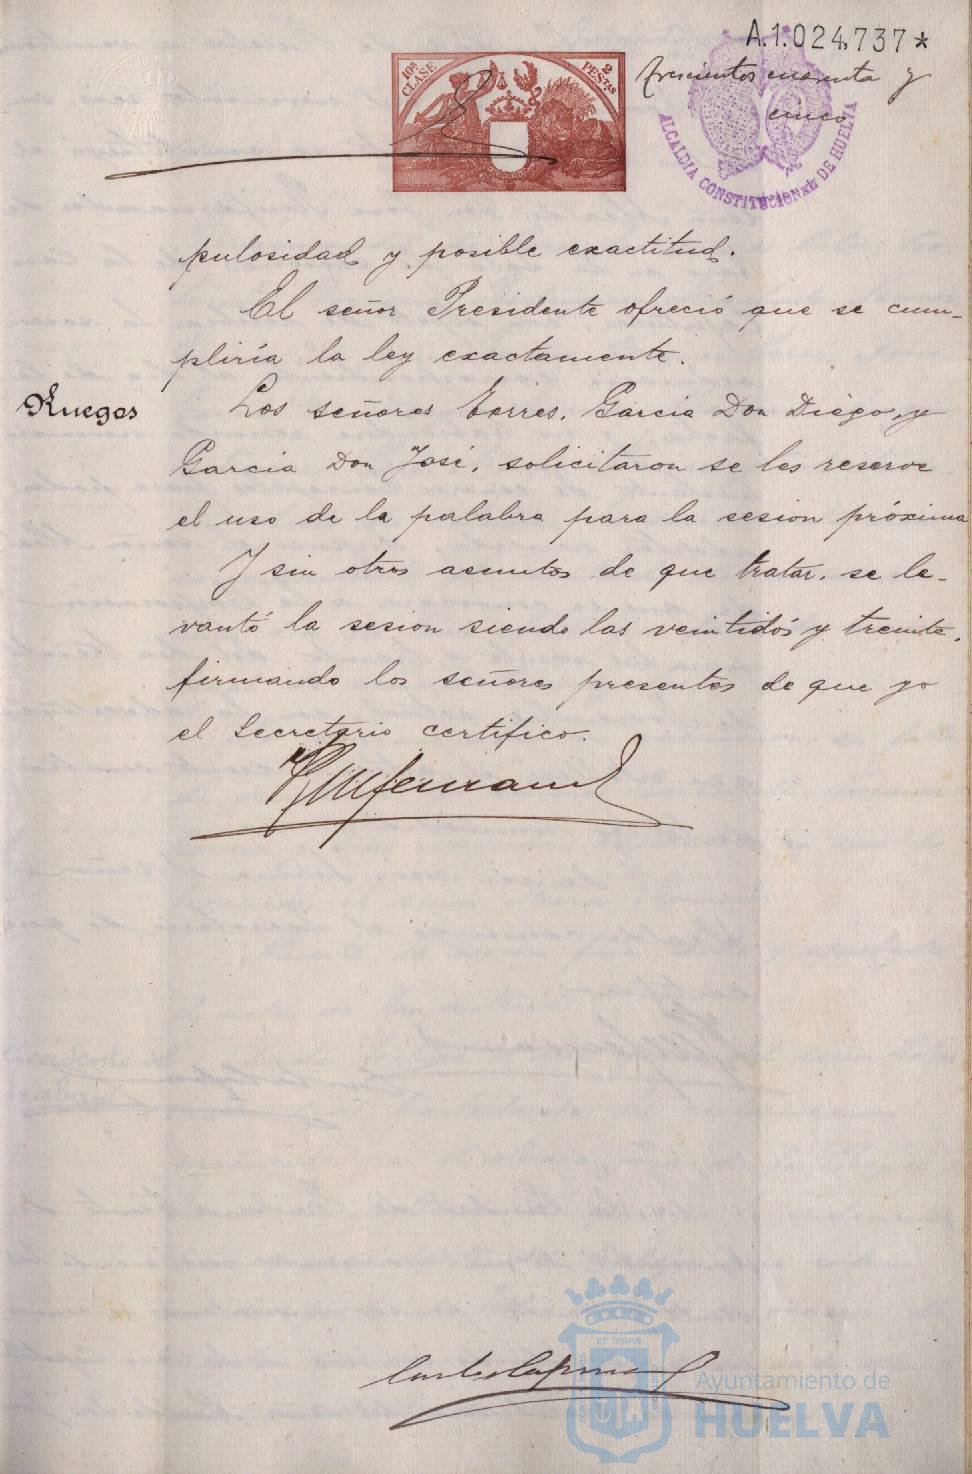 A.1.024,737*
10ª CLASE
2 PESTAS
trescientos cuarenta y
cinco
ALCALDIA CONSTITUCIONAL DE HUELVA
pulosidad y posible exactitud.
El señor Presidente ofreció que se cum-
pliría la ley exactamente.
Ruegos
Los señores Torres, García Don Diego, y
García Don José, solicitaron se les reserve
el uso de la palabra para la sesion próxima
Y sin otros asuntos de que tratar, se le-
vantó la sesion siendo las veintidós y treinta,
firmando los señores presentes de que yo
el Secretario certifico.
ET TERRÆ
Ayuntamiento de
HUELVA